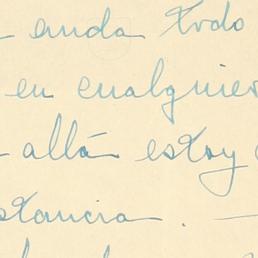 anda todo
en cualquier
allá estoy
stancia. —